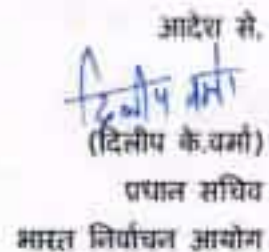 आदेश से,
दिलीप वर्मा
(दिलीप के.वर्मा)
प्रधान सचिव
भारत निर्वाचन आयोग